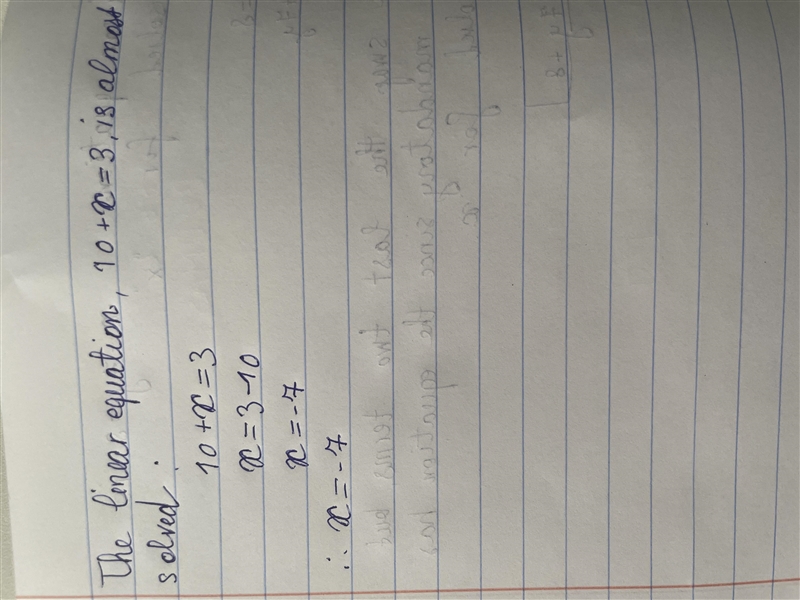 The linear equation, 10 + x = 3, is almost
solved.
10 + x = 3
x = 3 - 10
x = -7
∴ x = -7